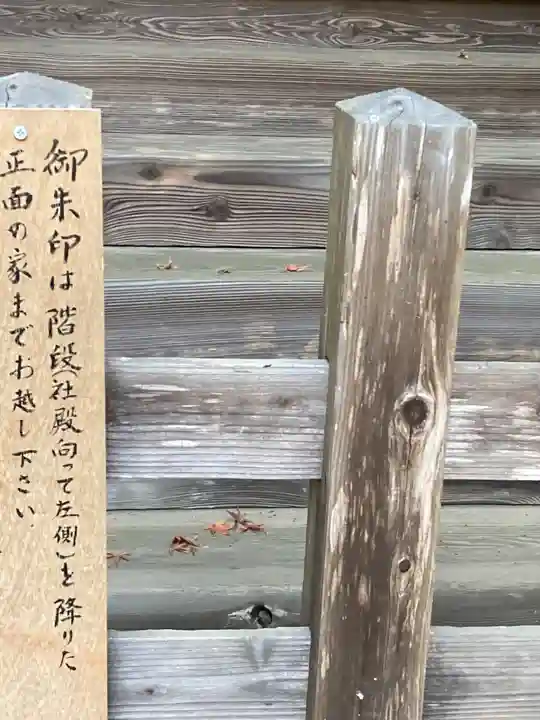 御朱印は階段(社殿向って左側)を降りた
正面の家までお越し下さい。